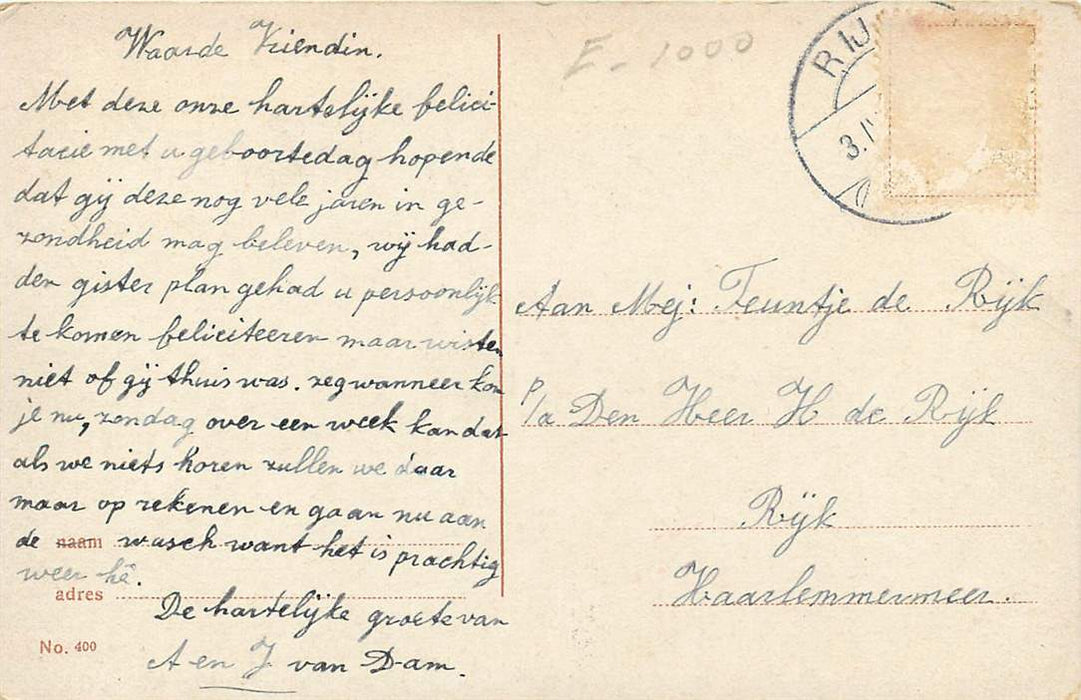 Waarde Vriendin.
Met deze onze hartelijke felici-
tacie met u geboortedag hopende
dat gij deze nog vele jaren in ge-
zondheid mag beleven, wij had-
den gister plan gehad u persoonlijk
te komen feliciteeren maar wisten
niet of gij thuis was. zeg wanneer kom
je nu, zondag over een week kan dat
als we niets horen zullen we daar
maar op rekenen en gaan nu aan
de naam wasch want het is prachtig
weer hê.
adres
De hartelijke groete van
A en J van Dam.
No. 400
F - 1000
RIJ
3.
Aan Mej: Teuntje de Rijk
p/a Den Heer H de Rijk
Rijk
Haarlemmermeer.